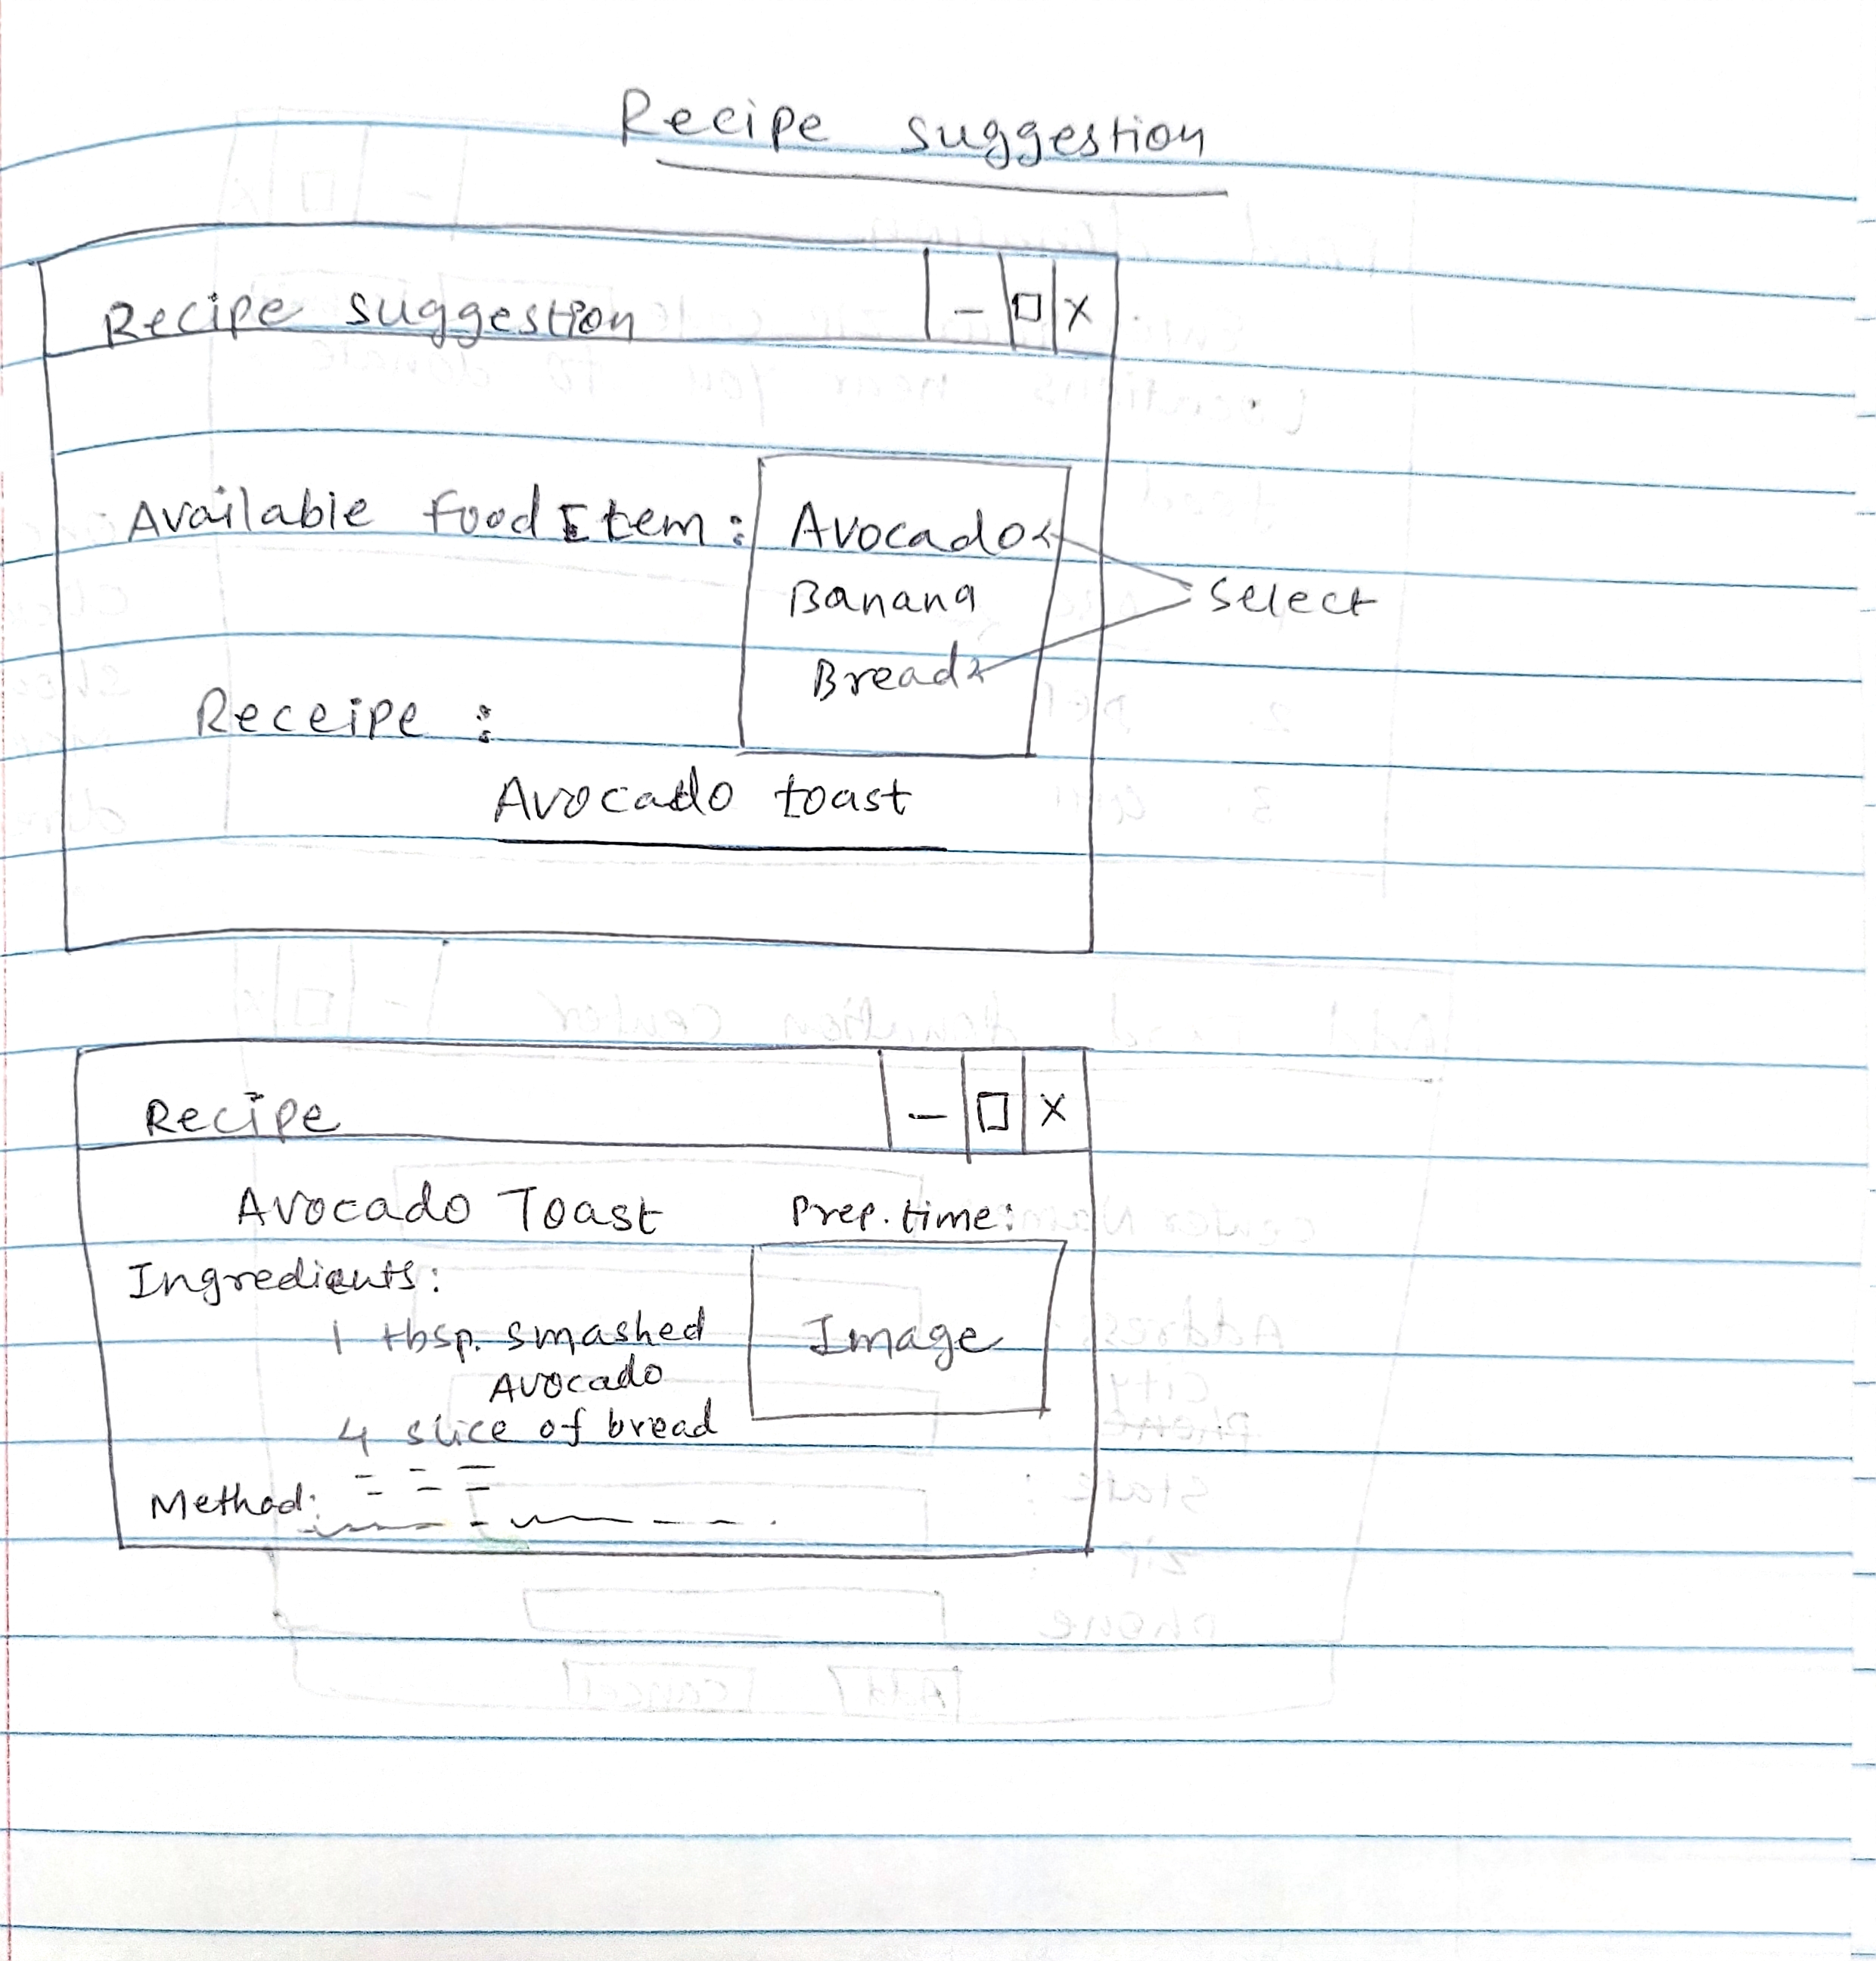 Recipe suggestion
Recipe suggestion - □ X
Available food Item: Avocado
Banana
Select
Bread
Receipe :
Avocado toast
Recipe - □ X
Avocado Toast Prep. time:
Ingredients:
1 tbsp. smashed
Avocado
Image
4 slice of bread
Method: